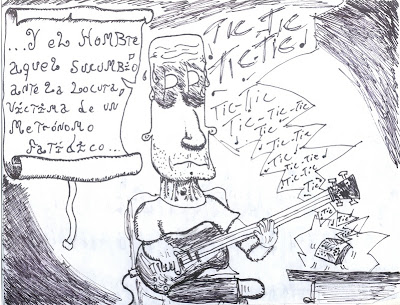 ...Y EL HOMBRE
AQUEL SUCUMBIÓ
ANTE LA LOCURA,
VÍCTIMA DE UN
METRÓNOMO
FATÍDICO...
TIC-TIC
TIC-TIC
TIC-TIC
TIC-TIC
-TIC-TIC-TIC
-TIC-TIC-
-TIC-TIC
TIC-TIC
TIC-TIC
TIC